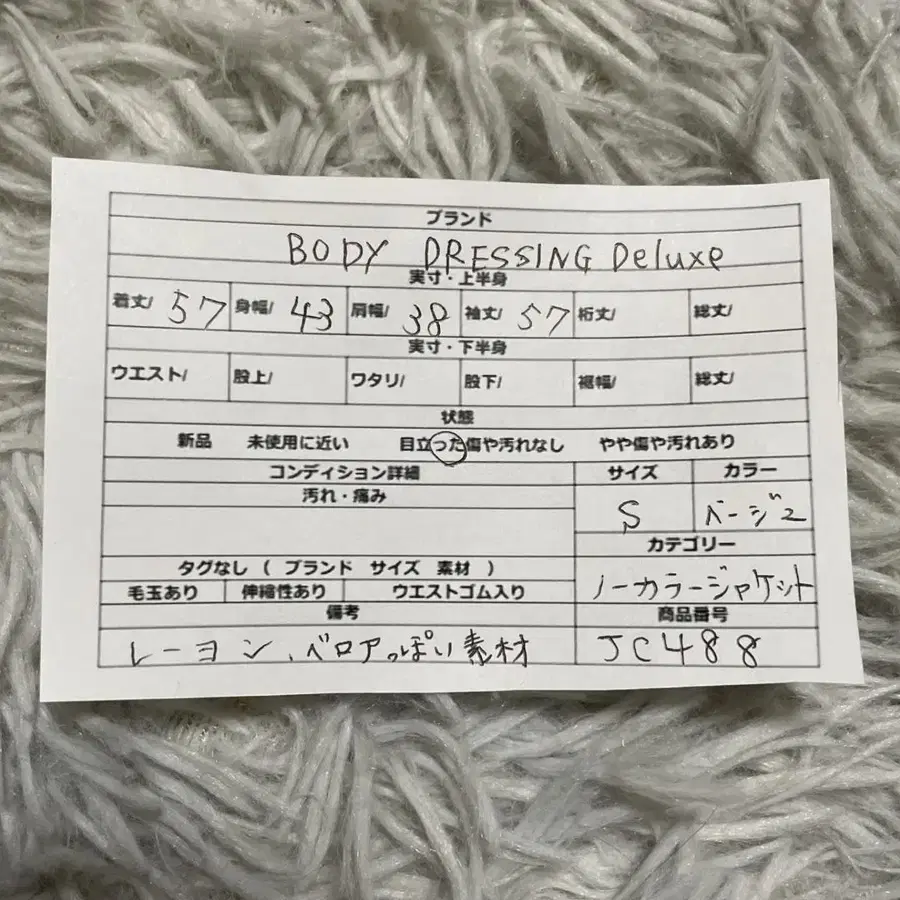 ブランド
BODY DRESSING Deluxe
実寸・上半身
着丈/ 57 身幅/ 43 肩幅/ 38 袖丈/ 57 裄丈/ 総丈/
実寸・下半身
ウエスト/ 股上/ ワタリ/ 股下/ 裾幅/ 総丈/
状態
新品 未使用に近い 目立った傷や汚れなし やや傷や汚れあり
コンディション詳細 サイズ カラー
汚れ・痛み
S ベージュ
カテゴリー
タグなし ( ブランド サイズ 素材 )
ノーカラージャケット
毛玉あり 伸縮性あり ウエストゴム入り
備考 商品番号
レーヨン、ベロアっぽい素材 JC488